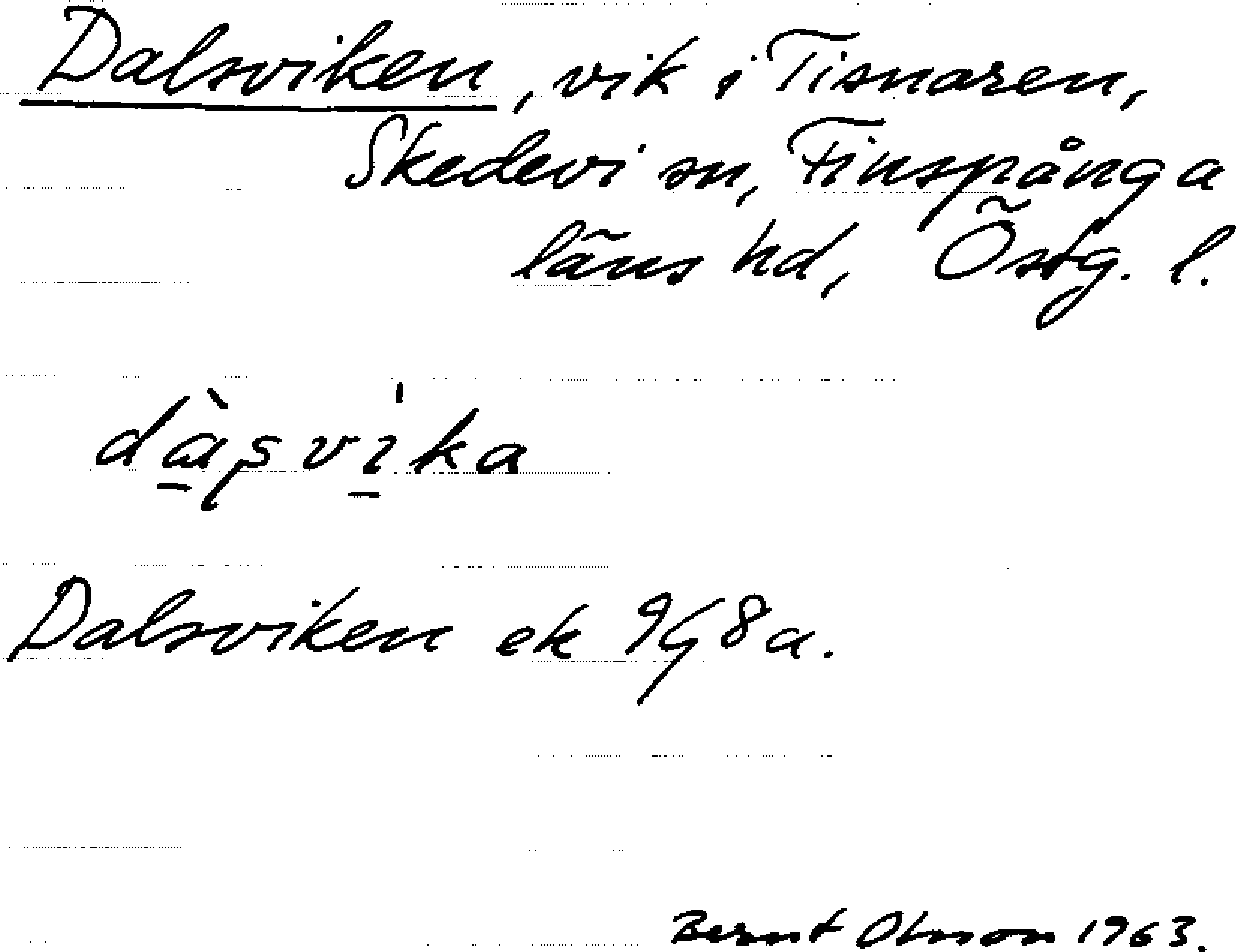 Dalsviken, vik i Tisnaren,
Skedevi sn, Finspånga
läns hd, Östg. l.
dàşvìka
Dalsviken ek 9G8a.
Bernt Olsson 1963.